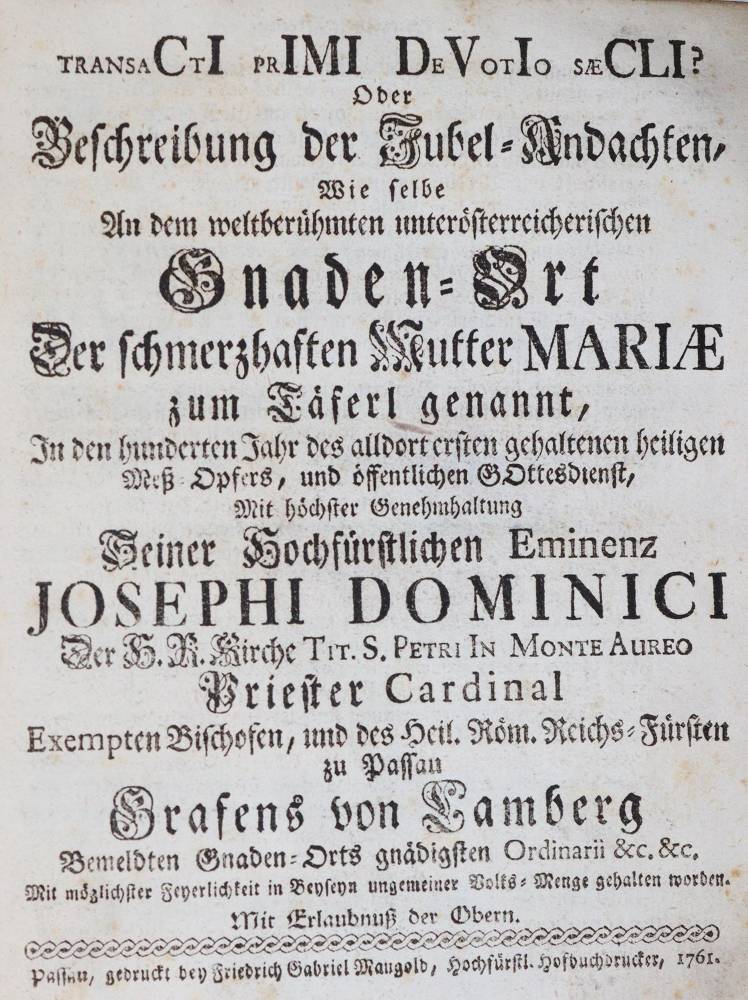 TRANSACTI PRIMI DEVOTIO SÆCLI?
Oder
Beschreibung der Jubel-Andachten,
Wie selbe
An dem weltberühmten unterösterreicherischen
Gnaden-Ort
Der schmerzhaften Mutter MARIÆ
zum Täferl genannt,
In den hunderten Jahr des alldort ersten gehaltenen heiligen
Meß-Opfers, und öffentlichen GOttesdienst,
Mit höchster Genehmhaltung
Seiner Hochfürstlichen Eminenz
JOSEPHI DOMINICI
Der H. R. Kirche TIT. S. PETRI IN MONTE AUREO
Priester Cardinal
Exempten Bischofen, und des Heil. Röm. Reichs-Fürsten
zu Passau
Grafens von Lamberg
Bemeldten Gnaden-Orts gnädigsten Ordinarii &c. &c.
Mit möglichster Feyerlichkeit in Beyseyn ungemeiner Volks-Menge gehalten worden.
Mit Erlaubnuß der Obern.
Passau, gedruckt bey Friedrich Gabriel Mangold, Hochfürstl. Hofbuchdrucker, 1761.